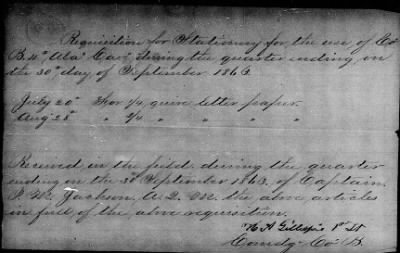 Requisition for Stationery for the use of Co
B. 4th Ala Cav. during the quarter ending on
the 30th day of September 1863.
July 20th For 1/4 quire letter paper.
Aug 28th " 3/4 " " " "
Received in the field during the quarter
ending on the 30th September 1863, of Captain
J. M. Jackson, A. Q. M. the above articles
in full of the above requisition.
H A Gillespie 1st Lt
Comdg Co B.